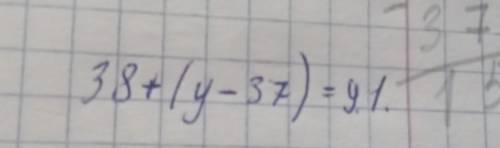 38+(y-37)=91.
37
1